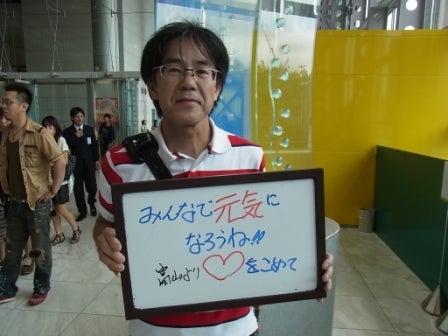 みんなで元気に
なろうね!!
富山より♡をこめて